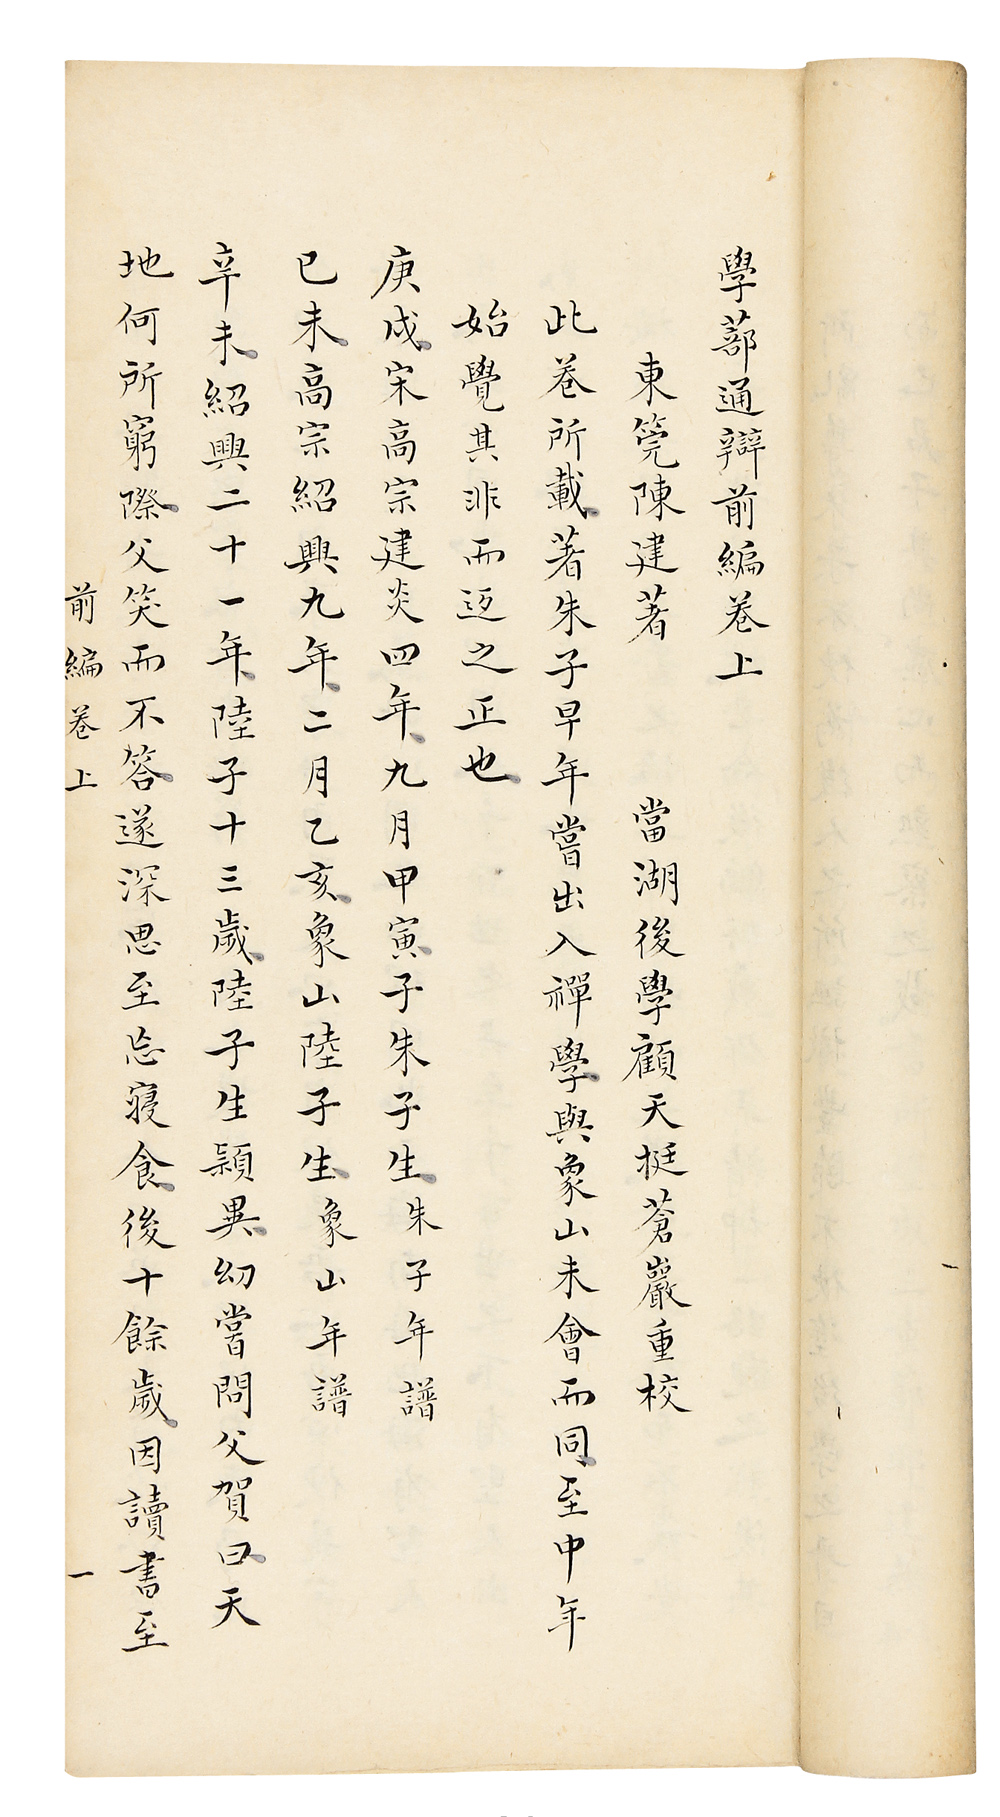 學蔀通辯前編卷上
東筦陳建著　當湖後學顧天挺蒼巖重校
此卷所載著朱子早年嘗出入禪學與象山未會而同至中年
始覺其非而返之正也
庚戌宋高宗建炎四年九月甲寅子朱子生朱子年譜
已未高宗紹興九年二月乙亥象山陸子生象山年譜
辛未紹興二十一年陸子十三歲陸子生穎異幼嘗問父賀曰天
地何所窮際父笑而不答遂深思至忘寢食後十餘歲因讀書至
前編卷上　一